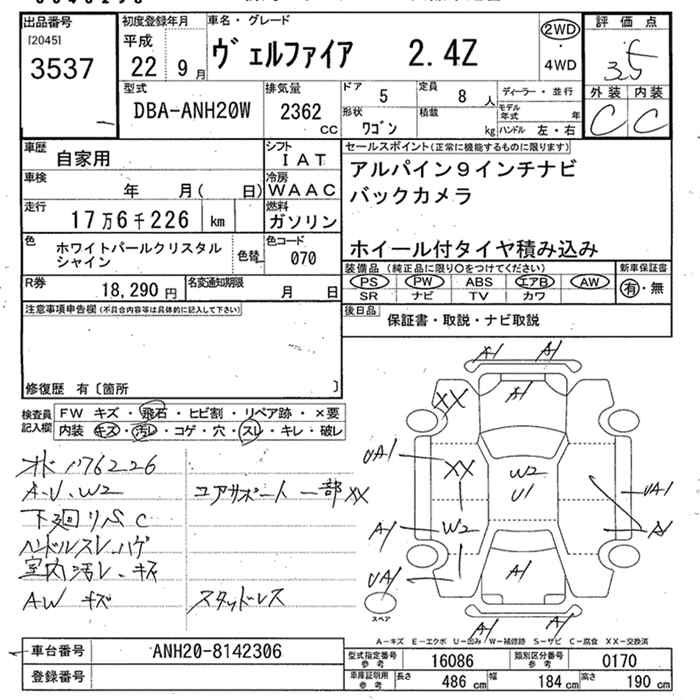 出品番号
[2045]
3537
初度登録年月
平成
22年 9月
車名・グレード
ヴェルファイア 2.4Z
2WD
4WD
評価点
3.5
外装 内装
C C
型式
DBA-ANH20W
排気量
2362 cc
ドア 5
定員 8 人
形状 ワゴン
積載 kg
ディーラー・並行
モデル年式 年
ハンドル 左・右
車歴 自家用
シフト IAT
車検 年 月( 日)
冷房 WAAC
走行 17万6千226 km
燃料 ガソリン
色 ホワイトパールクリスタルシャイン
色替
色コード 070
R券 18,290 円
名変通知期限 月 日
セールスポイント(正常に機能するものに限ります)
アルパイン9インチナビ
バックカメラ
ホイール付タイヤ積み込み
装備品(純正品に限り○をつけてください)
新車保証書
PS PW ABS エアB AW
有・無
SR ナビ TV カワ
後日品 保証書・取説・ナビ取説
注意事項申告欄(不具合内容等は具体的に記入して下さい)
修復歴 有〔箇所 〕
検査員記入欄
FW キズ・飛石・ヒビ割・リペア跡・×要
内装 キズ・汚レ・コゲ・穴・スレ・キレ・破レ
176226
A・U、W2
コアサポート一部XX
下廻リサビC
ハンドルスレ、ハゲ
室内汚レ、キズ
AW キズ
スタッドレス
A1 A1
XX A1
UA1 XX W2 U1 UA1
A1 W2 A
UA1 A1
スペア
A1 A1
A-キズ E-エクボ U-凹み W-補修跡 S-サビ C-腐食 XX-交換済
車台番号 ANH20-8142306
登録番号
型式指定番号 参考 16086
類別区分番号 参考 0170
車庫証明用 参考 長さ 486 cm 幅 184 cm 高さ 190 cm